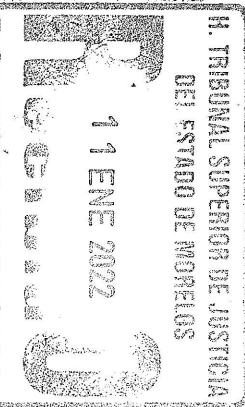 H. TRIBUNAL SUPERIOR DE JUSTICIA
DEL ESTADO DE MORELOS
11 ENE 2022